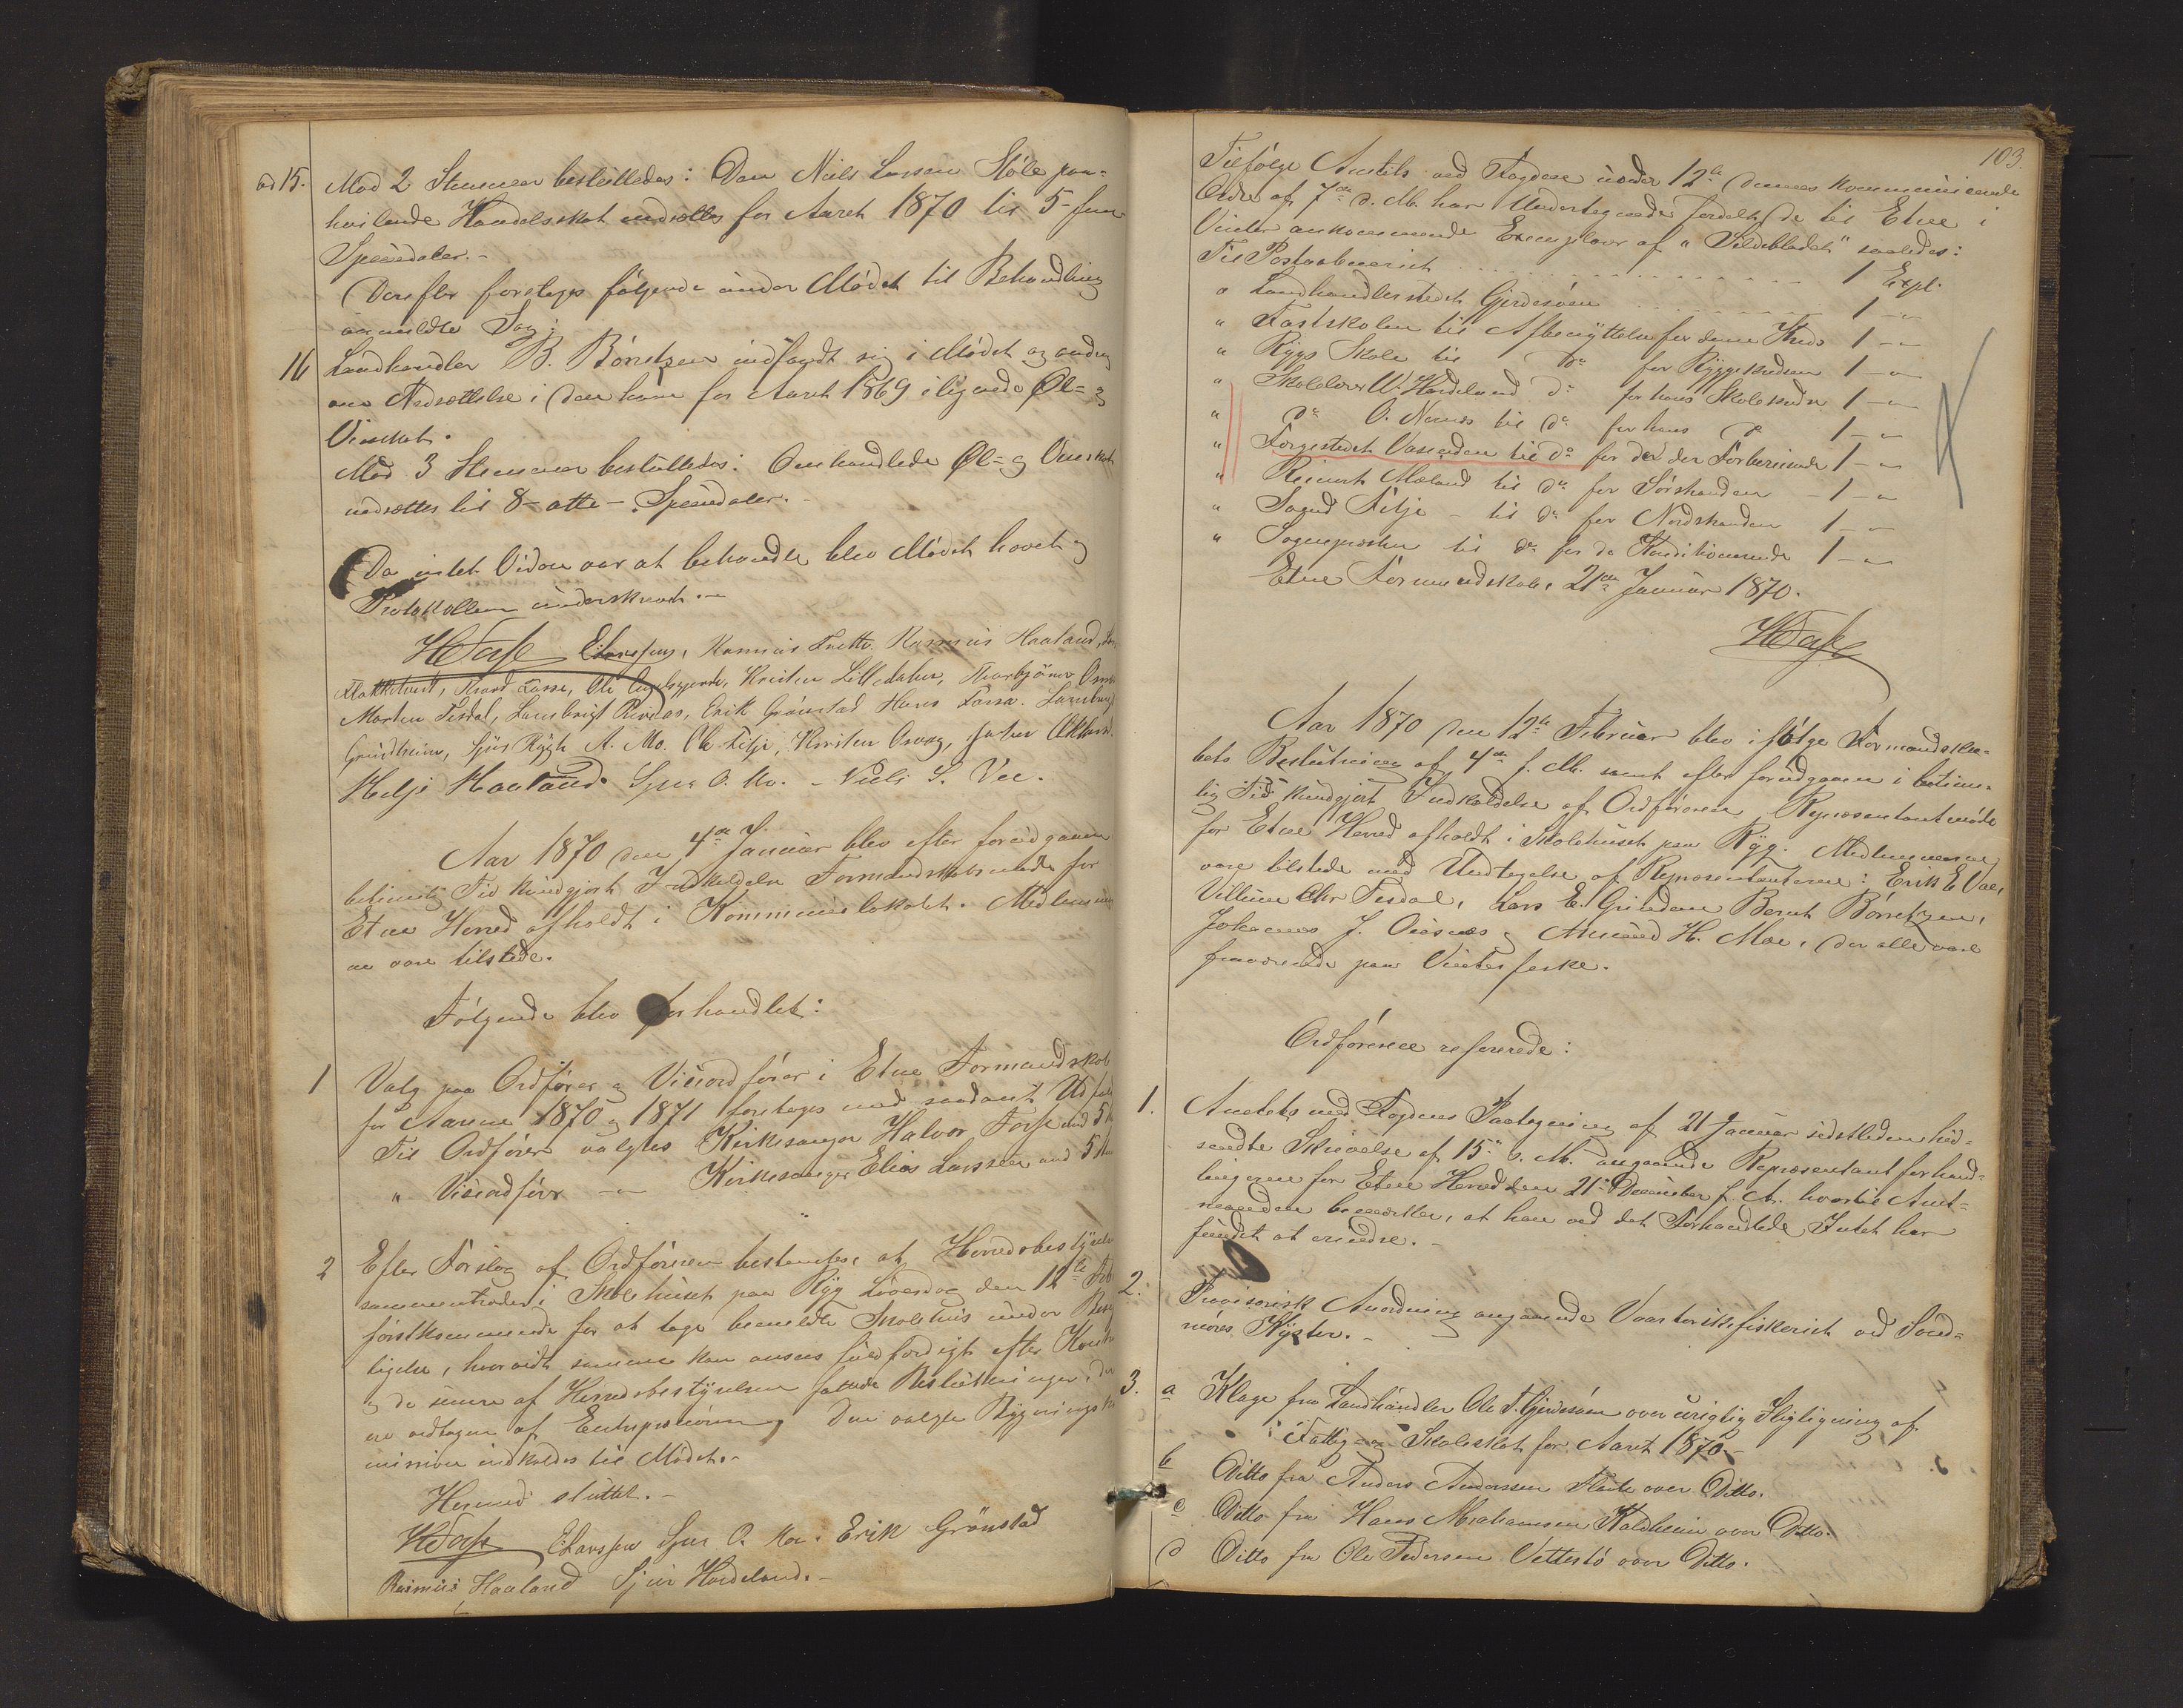 ad 15. Mod 2 Stemmer besluttedes: Den Niels Larsen Støle paa-
hvilende Handelsskat nedsættes for Aaret 1870 til 5- fem
Speciedaler.-
Derefter foretoges følgende under Mødet til Behandling
anmeldte Sag:
16 Landhandler B. Børretzen indfandt sig i Mødet og androg
om Nedsættelse i den ham for Aaret 1869 ilignede Øl- og
Vinskat.
Mod 3 Stemmer besluttedes: Omhandlede Øl- og Vinskat
nedsættes til 8- otte- Speciedaler.-
Da intet Videre var at behandle blev Mødet hævet og
Protokollen underskrevet.-
HTasse ELarssen, Rasmus Tvette. Rasmus Haaland,
Ole Kristen Lilledalen, Thorbjørn
Morten Tesdal, Lambrigt Erik Grönstad Hans
Grindheim, Sjur Rygh A. Mo. Ole Filje, Kirsten Osvag,
Helje Haaland. Sjur O. Mo. - Niels S. Vee.
Aar 1870 den 4de Januar blev efter forudgaaen
betimelig Tid kundgjort Indkaldelse Formandskabsmøde for
Etne Herred afholdt i Kommunelokalet. Medlemmer-
ne vare tilstede.
Følgende blev forhandlet:
1 Valg paa Ordfører og Viceordfører i Etne Formandskab
for Aarene 1870 og 1871 foretoges med saadant Udfald
Til Ordfører valgtes Kirkesanger Halvor Tasse med 5
" Viceordfører -"- Kirkesanger Elias Larssen med 5
2 Efter Forslag af Ordføreren bestemtes, at Herredsbestyrel
sammentræder i Skolehuset paa Ryg Løverdag den 12te Feb
førstkommende for at tage bemeldte Skolehus under Besig
tigelse, hvorvidt samme kan ansees fuldfærdigt efter
og de senere af Herredsbestyrelsen fattede Beslutninger, der
ere vedtagne af Entreprenøren. Den valgte Bygnings
mission indkaldes til Mødet.-
Hermed sluttet.-
HTasse ELarssen Sjur O. Mo. Erik Grönstad
Rasmus Haaland Sjur Hardeland.-
103.
Tilfølge Amtets ved Fogden under 12te dennes kommunicerede
Ordre af 7de d. M. har Undertegnede fordelt de til Etne i
Vinter ankommende Exemplarer af "Sildebladet" saaledes:
Til Postaabneriet 1 Expl.
" Landhandlerstedet Gjerdesøen 1 -"-
" Fastskolen til Afbenyttelse for denne Kreds 1 -"-
" Ryggs Skole til do for Ryggskredsen 1 -"-
" Skolelærer Hardeland do for hans Skolekredse 1 -"-
" do O. Nernes til do for hans do 1 -"-
" Torgestedet Vaxenden til do for de der Forbereisende 1 -"-
" Reinert Mæland til do for Sørstranden - 1 -"-
" Filje - til do for Nordstranden 1 -"-
" Sognepresten til do for de Konditionerede 1 -"-
Etne Formandskab, 21de Januar 1870.
HTasse
Aar 1870 den 12te Februar blev ifølge Formandska-
bets Beslutning af 4de f. M. samt efter forudgaaen i betime-
lig Tid kundgjort Indkaldelse af Ordføreren, Repræsentantmøde
for Etne Herred afholdt i Skolehuset paa Ryg. Medlemmerne
vare tilstede med Undtagelse af Repræsentanterne: Erik E. Vaa,
Villum Chr Tesdal, Lars E. Grindem Bernt Børretzen,
Johannes J. og Amund H. Moe, der alle vare
fraværende paa Vinterfiske.
Ordføreren refererede:
1. Amtets med Fogdens Paategning af 21 Januar sidstleden hid-
sendte Skrivelse af 15de s. M. angaaende Repræsentantforhand-
lingerne for Etne Herred den 21de December f. A. hvortil Amt-
manden bemærker, at han ved det Forhandlede Intet har
fundet at erindre.-
2. Provisorisk Anordning angaaende Vaartorskefiskeriet ved Sønd-
møres Kyster.-
3. a Klage fra Landhandler Ole T. Gjerdesøen over urigtig Iligning af
Fattig- og Skoleskat for Aaret 1870.-
b Ditto fra Anders Anderssen over Ditto.
c Ditto fra Hans Abrahamsen Kaldheim over Ditto.
d Ditto fra Ole Pedersen Vettestø over Ditto.